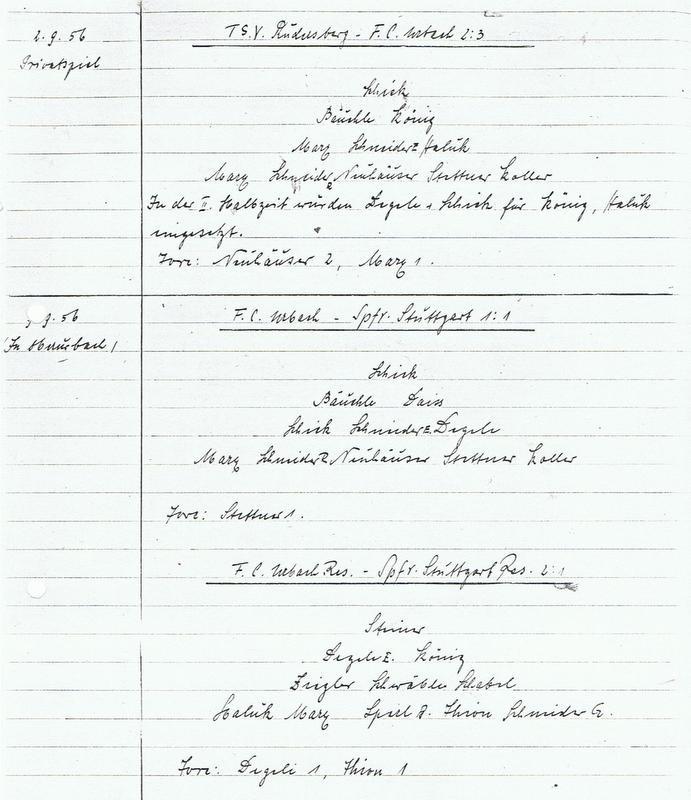 2.9.56
Privatspiel
T.S.V. Rudersberg - F.C. Urbach 2:3
Schick
Bäuchle König
Marx Schneider E Haluk
Marx Schneider R Neuhäuser Stettner Koller
In der II. Halbzeit wurden Degele + Schick für König, Haluk
eingesetzt.
Tore: Neuhäuser 2, Marx 1.
9.56
F.C. Urbach - Spfr. Stuttgart 1:1
(In
Schick
Bäuchle Daiss
Schick Schneider E. Degele
Marx Schneider R Neuhäuser Stettner Koller
Tore: Stettner 1.
F.C. Urbach Res. - Spfr. Stuttgart Res. 2:1
Steiner
Degele E. König
Ziegler Schwäble Schabel
Haluk Marx Spiel Thron Schneider G.
Tore: Degele 1, Thron 1